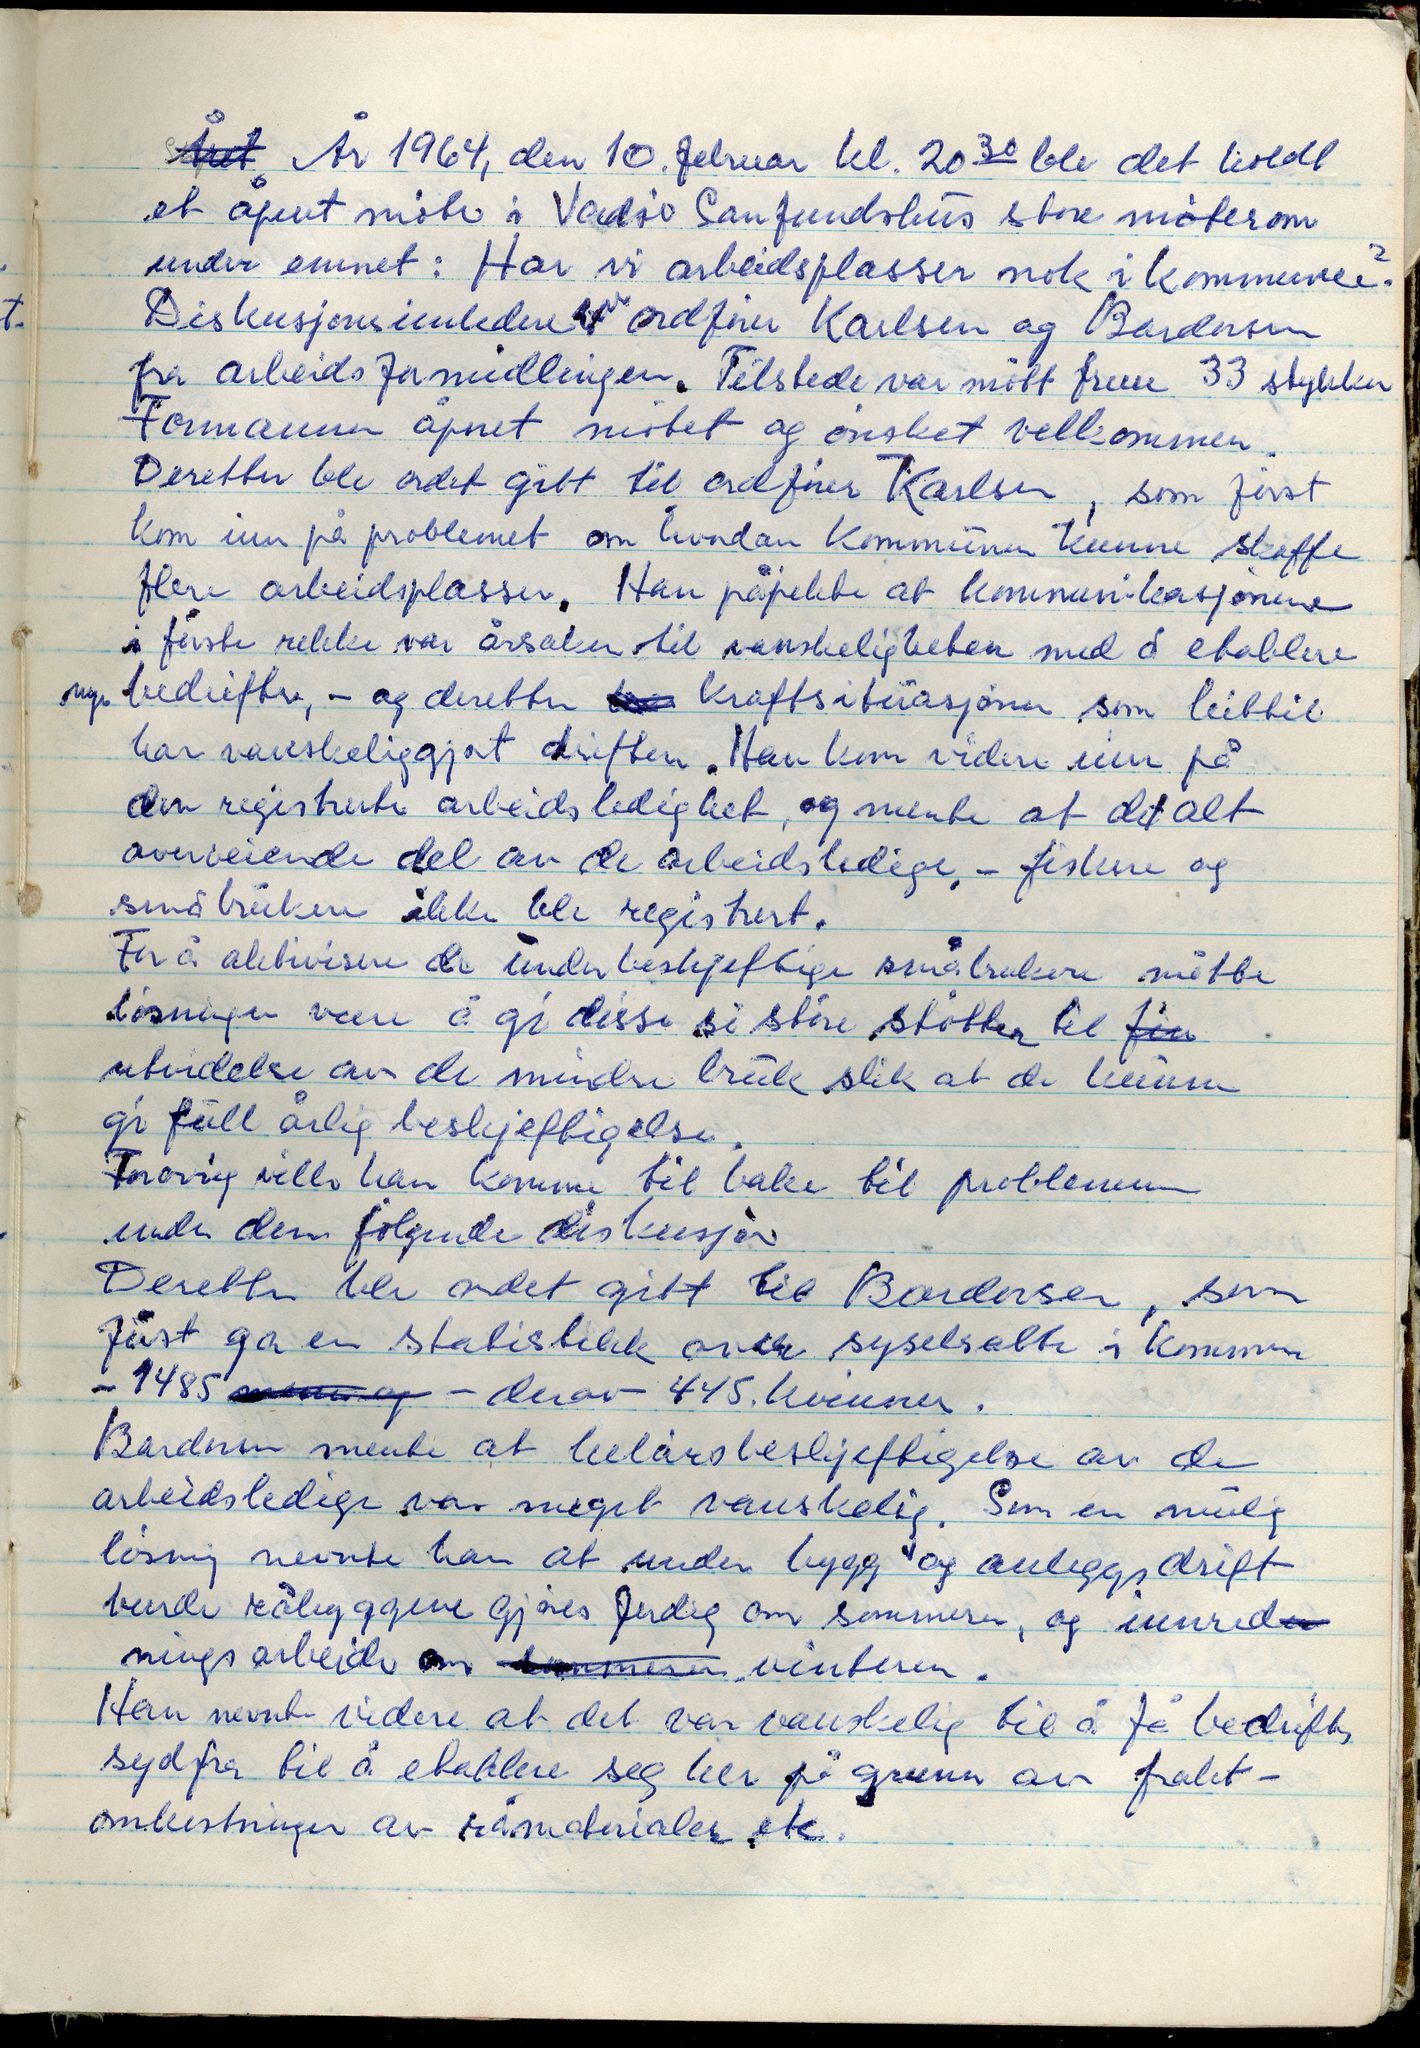 År 1964, den 10. februar kl. 20 30 ble det holdt
et åpent møte i Vadsø Samfundshus store møterom
under emnet: Har vi arbeidsplasser nok i kommunen?
Diskusjonsinnledere var ordfører Karlsen og Bardersen
fra arbeidsformidlingen. Tilstede var møtt frem 33 stykker
Formannen åpnet møtet og ønsket velkommen.
Deretter ble ordet gitt til ordfører Karlsen, som først
kom inn på problemet om hvordan kommunen kunne skaffe
flere arbeidsplasser. Han påpekte at kommunikasjonene
i første rekke var årsaken til vanskeligheten med å etablere
nye bedrifter, - og deretter kraftsituasjonen som hittil
har vanskeliggjort driften. Han kom videre inn på
den registrerte arbeidsledighet, og mente at det alt
overveiende del av de arbeidsledige, - fiskere og
småbrukere ikke ble registrert.
For å aktivisere de underbeskjeftige småbrukere måtte
løsningen være å gi disse så store støtter til
utvidelse av de mindre bruk slik at de kunne
gi full årlig beskjeftigelse.
Forøvrig ville han komme tilbake til problemene
under den følgende diskusjon
Deretter ble ordet gitt til Bardersen, som
først ga en statistikk over syselsatte i kommunen
- 1485 - derav 445. kvinner.
Bardersen mente at helårsbeskjeftigelse av de
arbeidsledige var meget vanskelig. Som en mulig
løsning nevnte han at under bygg og anleggsdrift
burde råbyggene gjøres ferdig om sommeren, og innred
ningsarbeide om vinteren.
Han nevnte videre at det var vanskelig til å få bedrifter
sydfra til å etablere seg her på grunn av frakt-
omkostninger av råmaterialer etc.